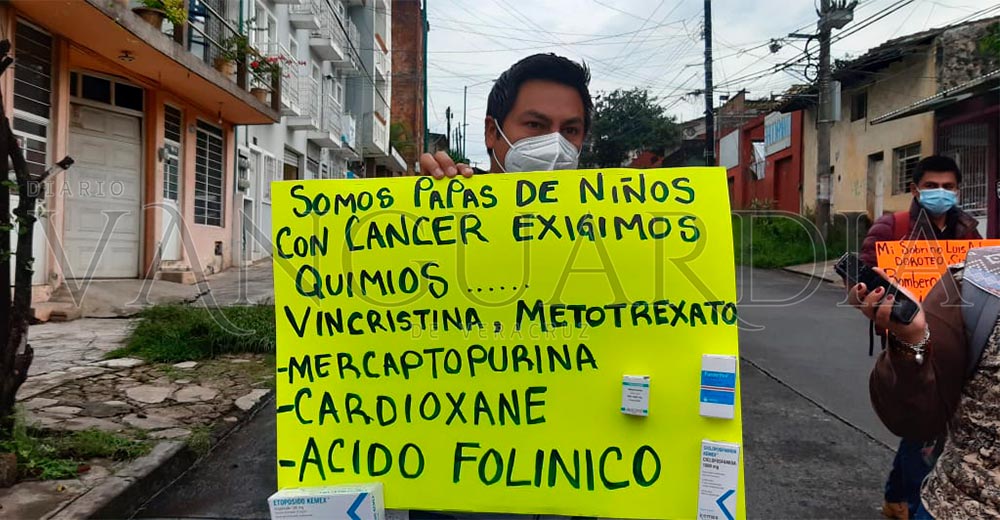 SOMOS PAPAS DE NIÑOS
CON CANCER EXIGIMOS
QUIMIOS ......
VINCRISTINA, METOTREXATO
-MERCAPTOPURINA
-CARDIOXANE
-ACIDO FOLINICO
ETOPOSIDO KEMEX
CICLOFOSFAMIDA
Mi Sobrino Luis
DOROTEO
Bombero
DIARIO
VANGUARDIA
DE VERACRUZ